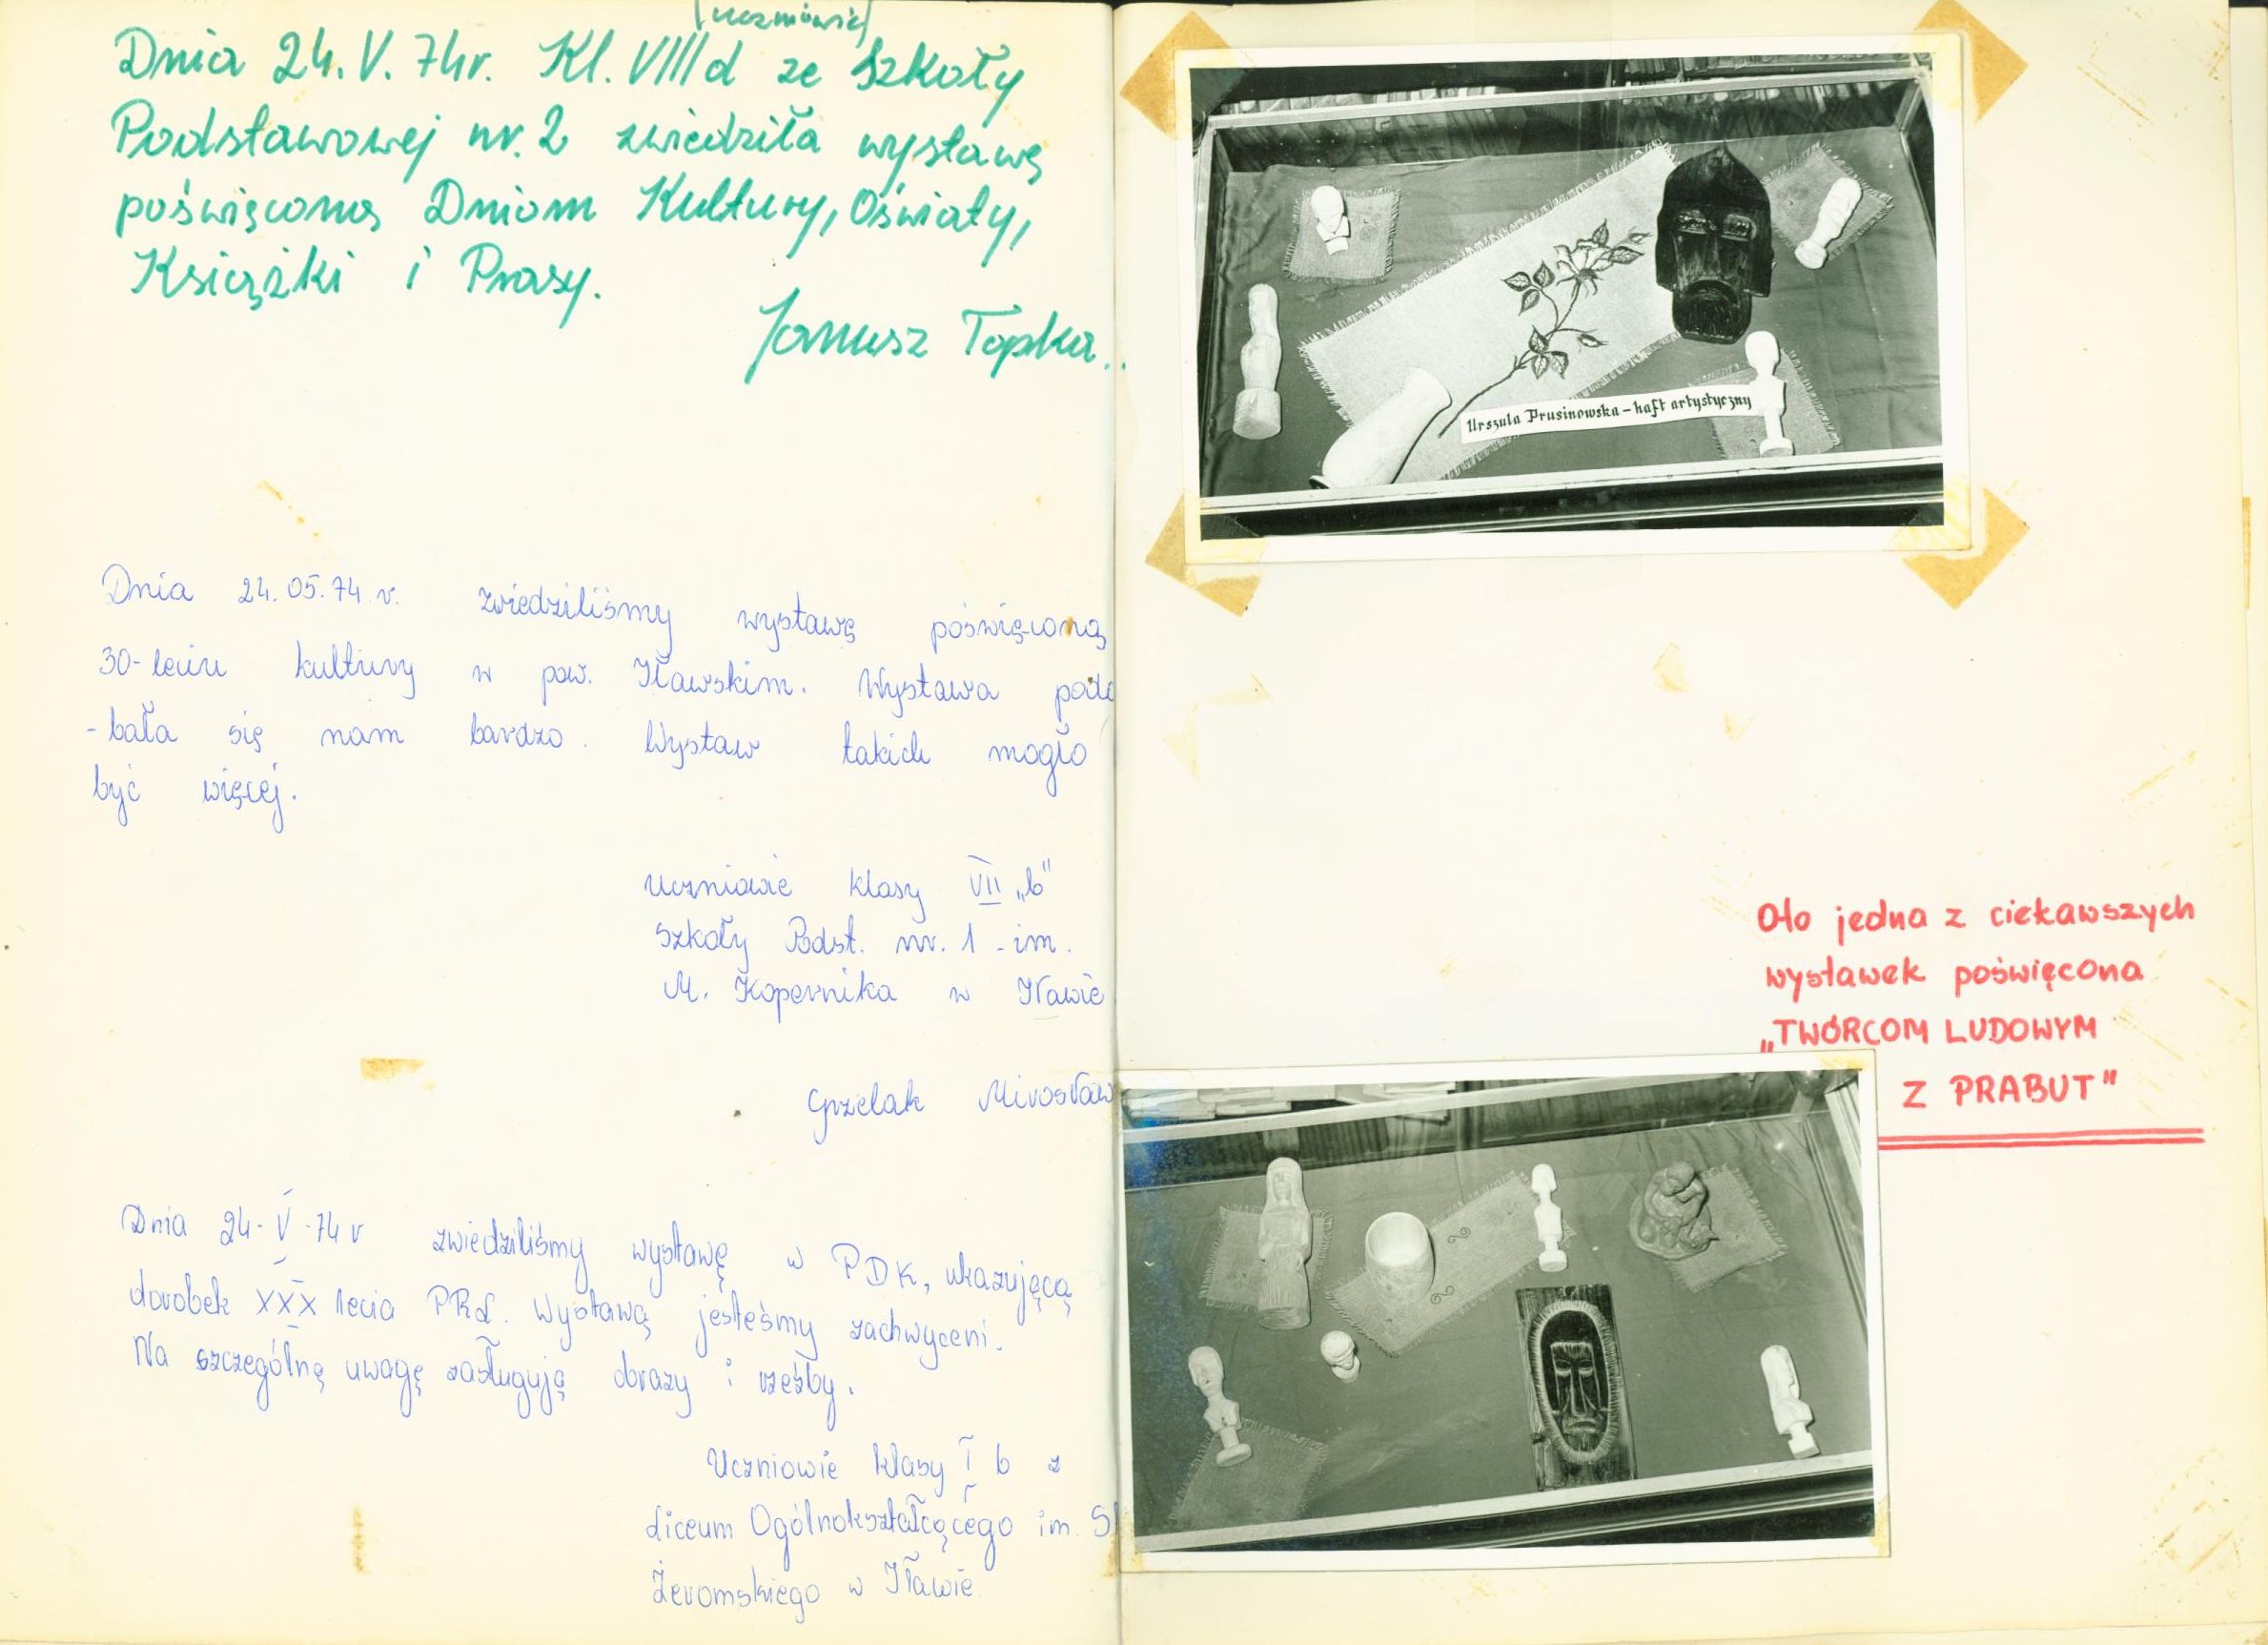 (uczniowie)
Dnia 24.V.74r. Kl. VIIId ze Szkoły
Podstawowej nr. 2 zwiedziła wystawę
poświęconą Dniom Kultury, Oświaty,
Książki i Prasy.
Janusz Topka..
Dnia 24.05.74.r. zwiedziliśmy wystawę poświęconą
30-leciu kultury w pow. Iławskim. Wystawa podo
-bała się nam bardzo. Wystaw takich mogło
być więcej.
Uczniowie klasy VII „b"
Szkoły Podst. nr. 1 - im.
M. Kopernika w Iławie
Grzelak Mirosław
Dnia 24-V-74 r zwiedziliśmy wystawę w PDK, ukazującą
dorobek XXX lecia PRL. Wystawą jesteśmy zachwyceni.
Na szczególną uwagę zasługują obrazy i rzeźby.
Uczniowie klasy I b z
Liceum Ogólnokształcącego im. St
Żeromskiego w Iławie
Urszula Prusinowska – haft artystyczny
Oto jedna z ciekawszych
wystawek poświęcona
„TWÓRCOM LUDOWYM
Z PRABUT"